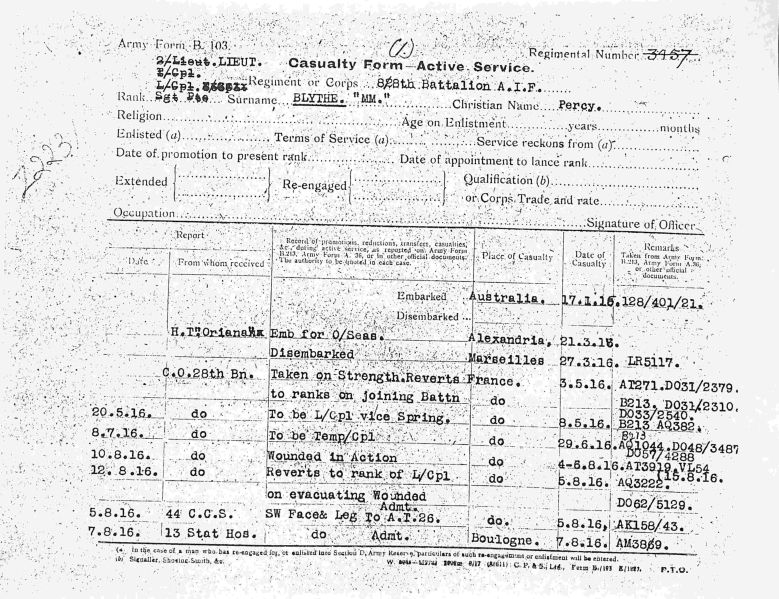 Army Form B. 103.
(1.)
Regimental Number 3457
2/Lieut. LIEUT.
Casualty Form—Active Service.
T/Cpl.
L/Cpl. Regiment or Corps 28th Battalion A.I.F.
Rank Sgt Pte Surname BLYTHE. "MM." Christian Name Percy.
Religion Age on Enlistment years months
Enlisted (a) Terms of Service (a) Service reckons from (a)
Date of promotion to present rank Date of appointment to lance rank
Extended Re-engaged Qualification (b)
or Corps Trade and rate
Occupation Signature of Officer
2223
Report Record of promotions, reductions, transfers, casualties, &c., during active service, as reported on Army Form B.213, Army Form A. 36, or in other official documents. The authority to be quoted in each case. Place of Casualty Date of Casualty Remarks Taken from Army Form B.213, Army Form A.36, or other official documents.
Date From whom received
Embarked Australia. 17.1.16. 128/401/21.
Disembarked
Emb for O/Seas. Alexandria, 21.3.16.
Disembarked Marseilles 27.3.16. LR5117.
C.O.28th Bn. Taken on Strength.Reverts France. 3.5.16. AT271.DO31/2379.
to ranks on joining Battn do B213. DO31/2310.
DO33/2540.
20.5.16. do To be L/Cpl vice Spring. do 8.5.16. B213 AQ382.
B213
8.7.16. do To be Temp/Cpl do 29.6.16. AQ1044.DO48/3487
DO57/4288
10.8.16. do Wounded in Action do 4-5.8.16. AT3919.VL54
(15.8.16.
12.8.16. do Reverts to rank of L/Cpl do 5.8.16. AQ3222.
on evacuating Wounded DO62/5129.
Admt.
5.8.16. 44 C.C.S. SW Face& Leg To A.T.26. do. 5.8.16, AK158/43.
7.8.16. 13 Stat Hos. do Admt. Boulogne. 7.8.16. AM3869.
(a) In the case of a man who has re-engaged for, or enlisted into Section D, Army Reserve, particulars of such re-engagement or enlistment will be entered.
(b) Signaller, Shoeing-Smith, &c.
P.T.O.